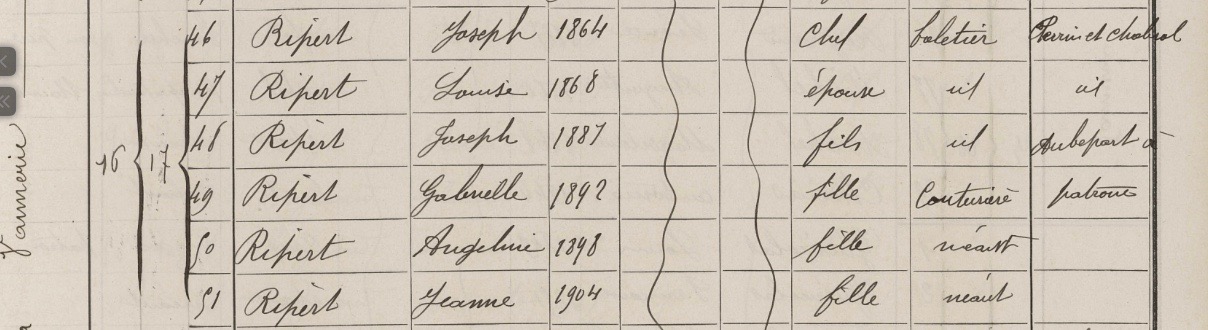 46 Ripert Joseph 1864 Chef galetier Perrin et Chabrol
47 Ripert Louise 1868 épouse id id
48 Ripert Joseph 1887 fils id
49 Ripert Gabrielle 1892 fille Couturière patronne
50 Ripert Angeline 1898 fille néant
51 Ripert Jeanne 1904 fille néant
16 17